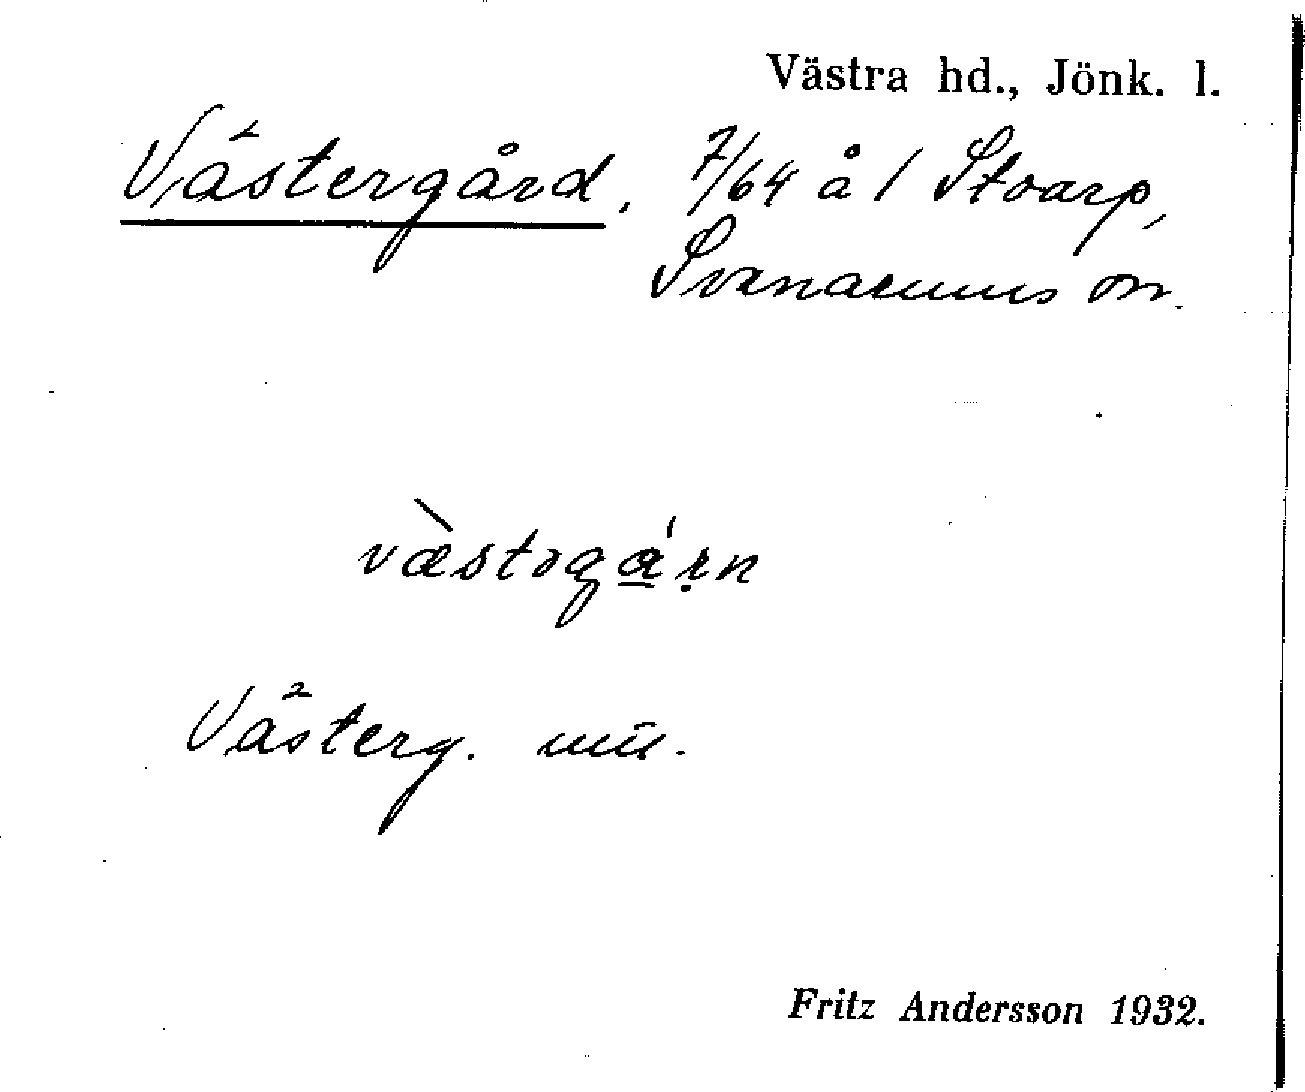 Västra hd., Jönk. l.
Västergård, 7/64 å 1 Stoarp,
Svenarums sn.
væstəgɑ́ṛn
Västerg. mü.
Fritz Andersson 1932.